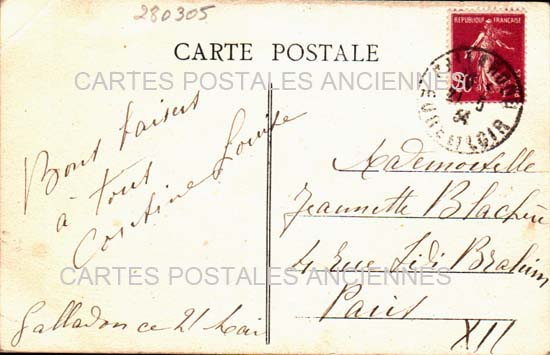 280305
REPUBLIQUE FRANÇAISE
20
CARTE POSTALE
CARTES POSTALES ANCIENNES
EURE ET LOIR
5
34
Bons baisers
à tous
Cousine Louise
Galladon ce 21 Mai
Mademoiselle
Jeannette
4 Rue Sidi Brahim
Paris
XII
CARTES POSTALES ANCIENNES